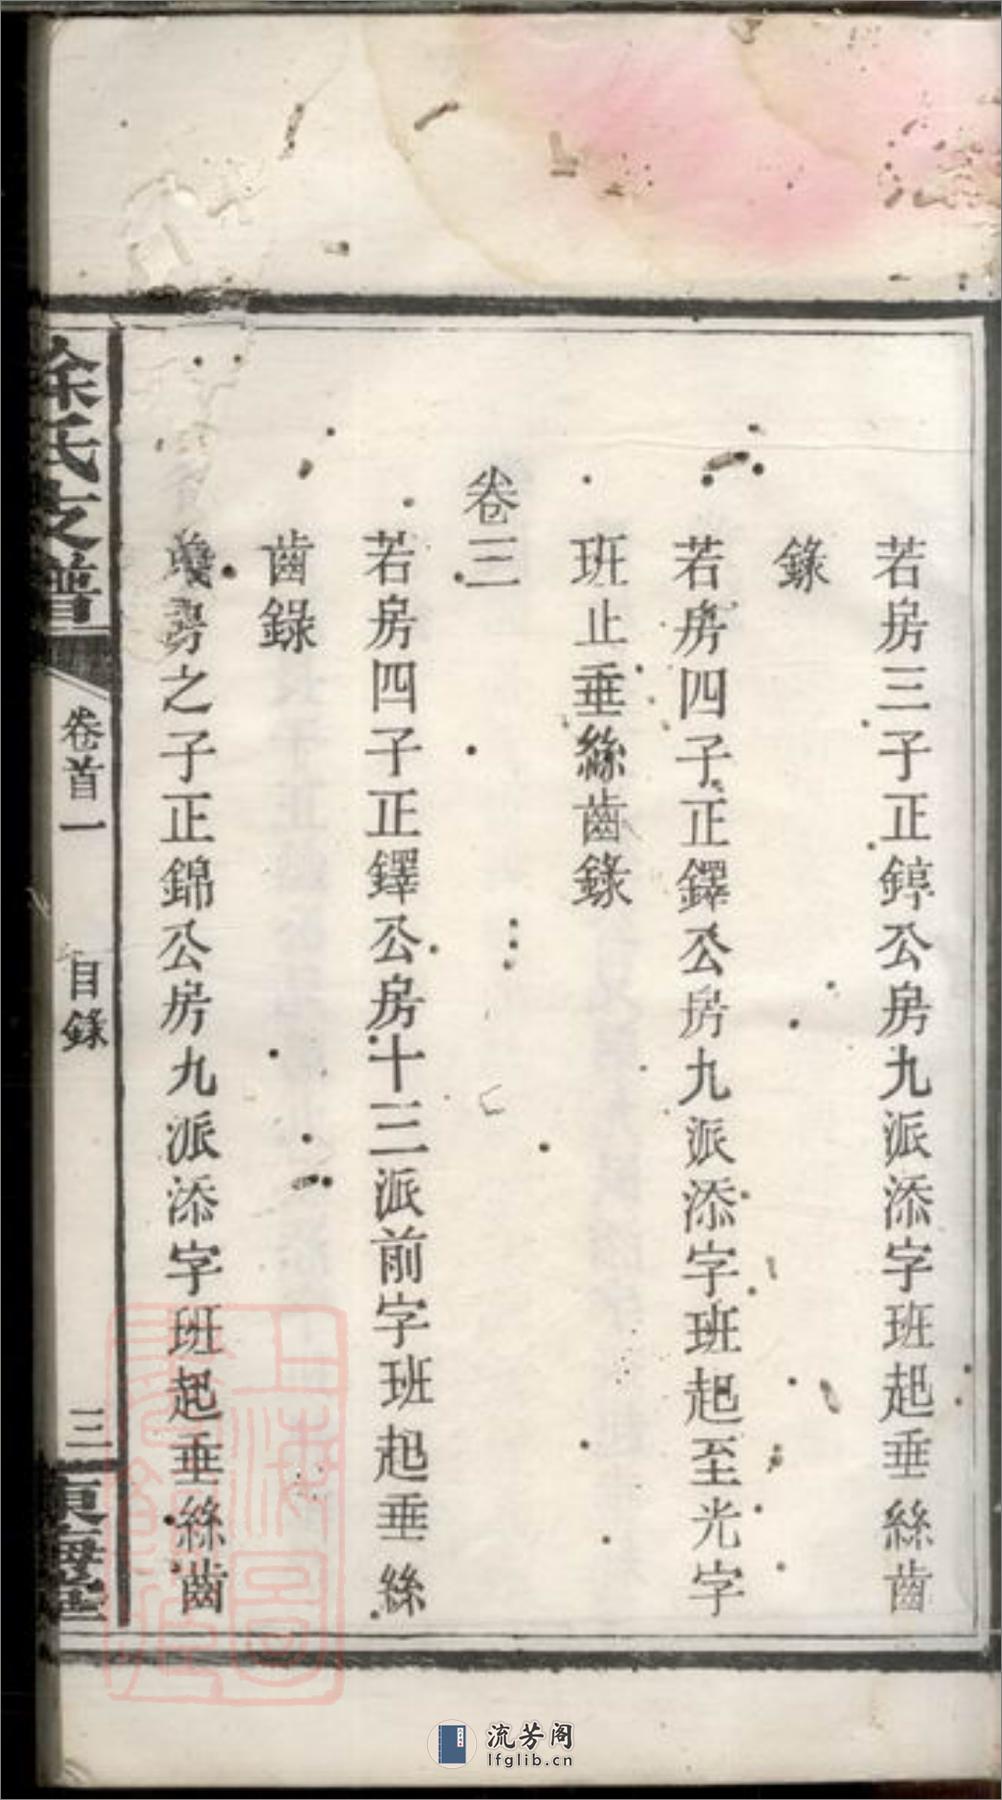 若房三子正錞公房九派添字班起垂絲齒
錄
若房四子正鐸公房九派添字班起至光字
班止垂絲齒錄
卷三
若房四子正鐸公房十三派前字班起垂絲
齒錄
房之子正錦公房九派添字班起垂絲齒
徐氏支譜
卷首一
目錄
三
東海堂
上海圖
流芳阁
lfglib.cn